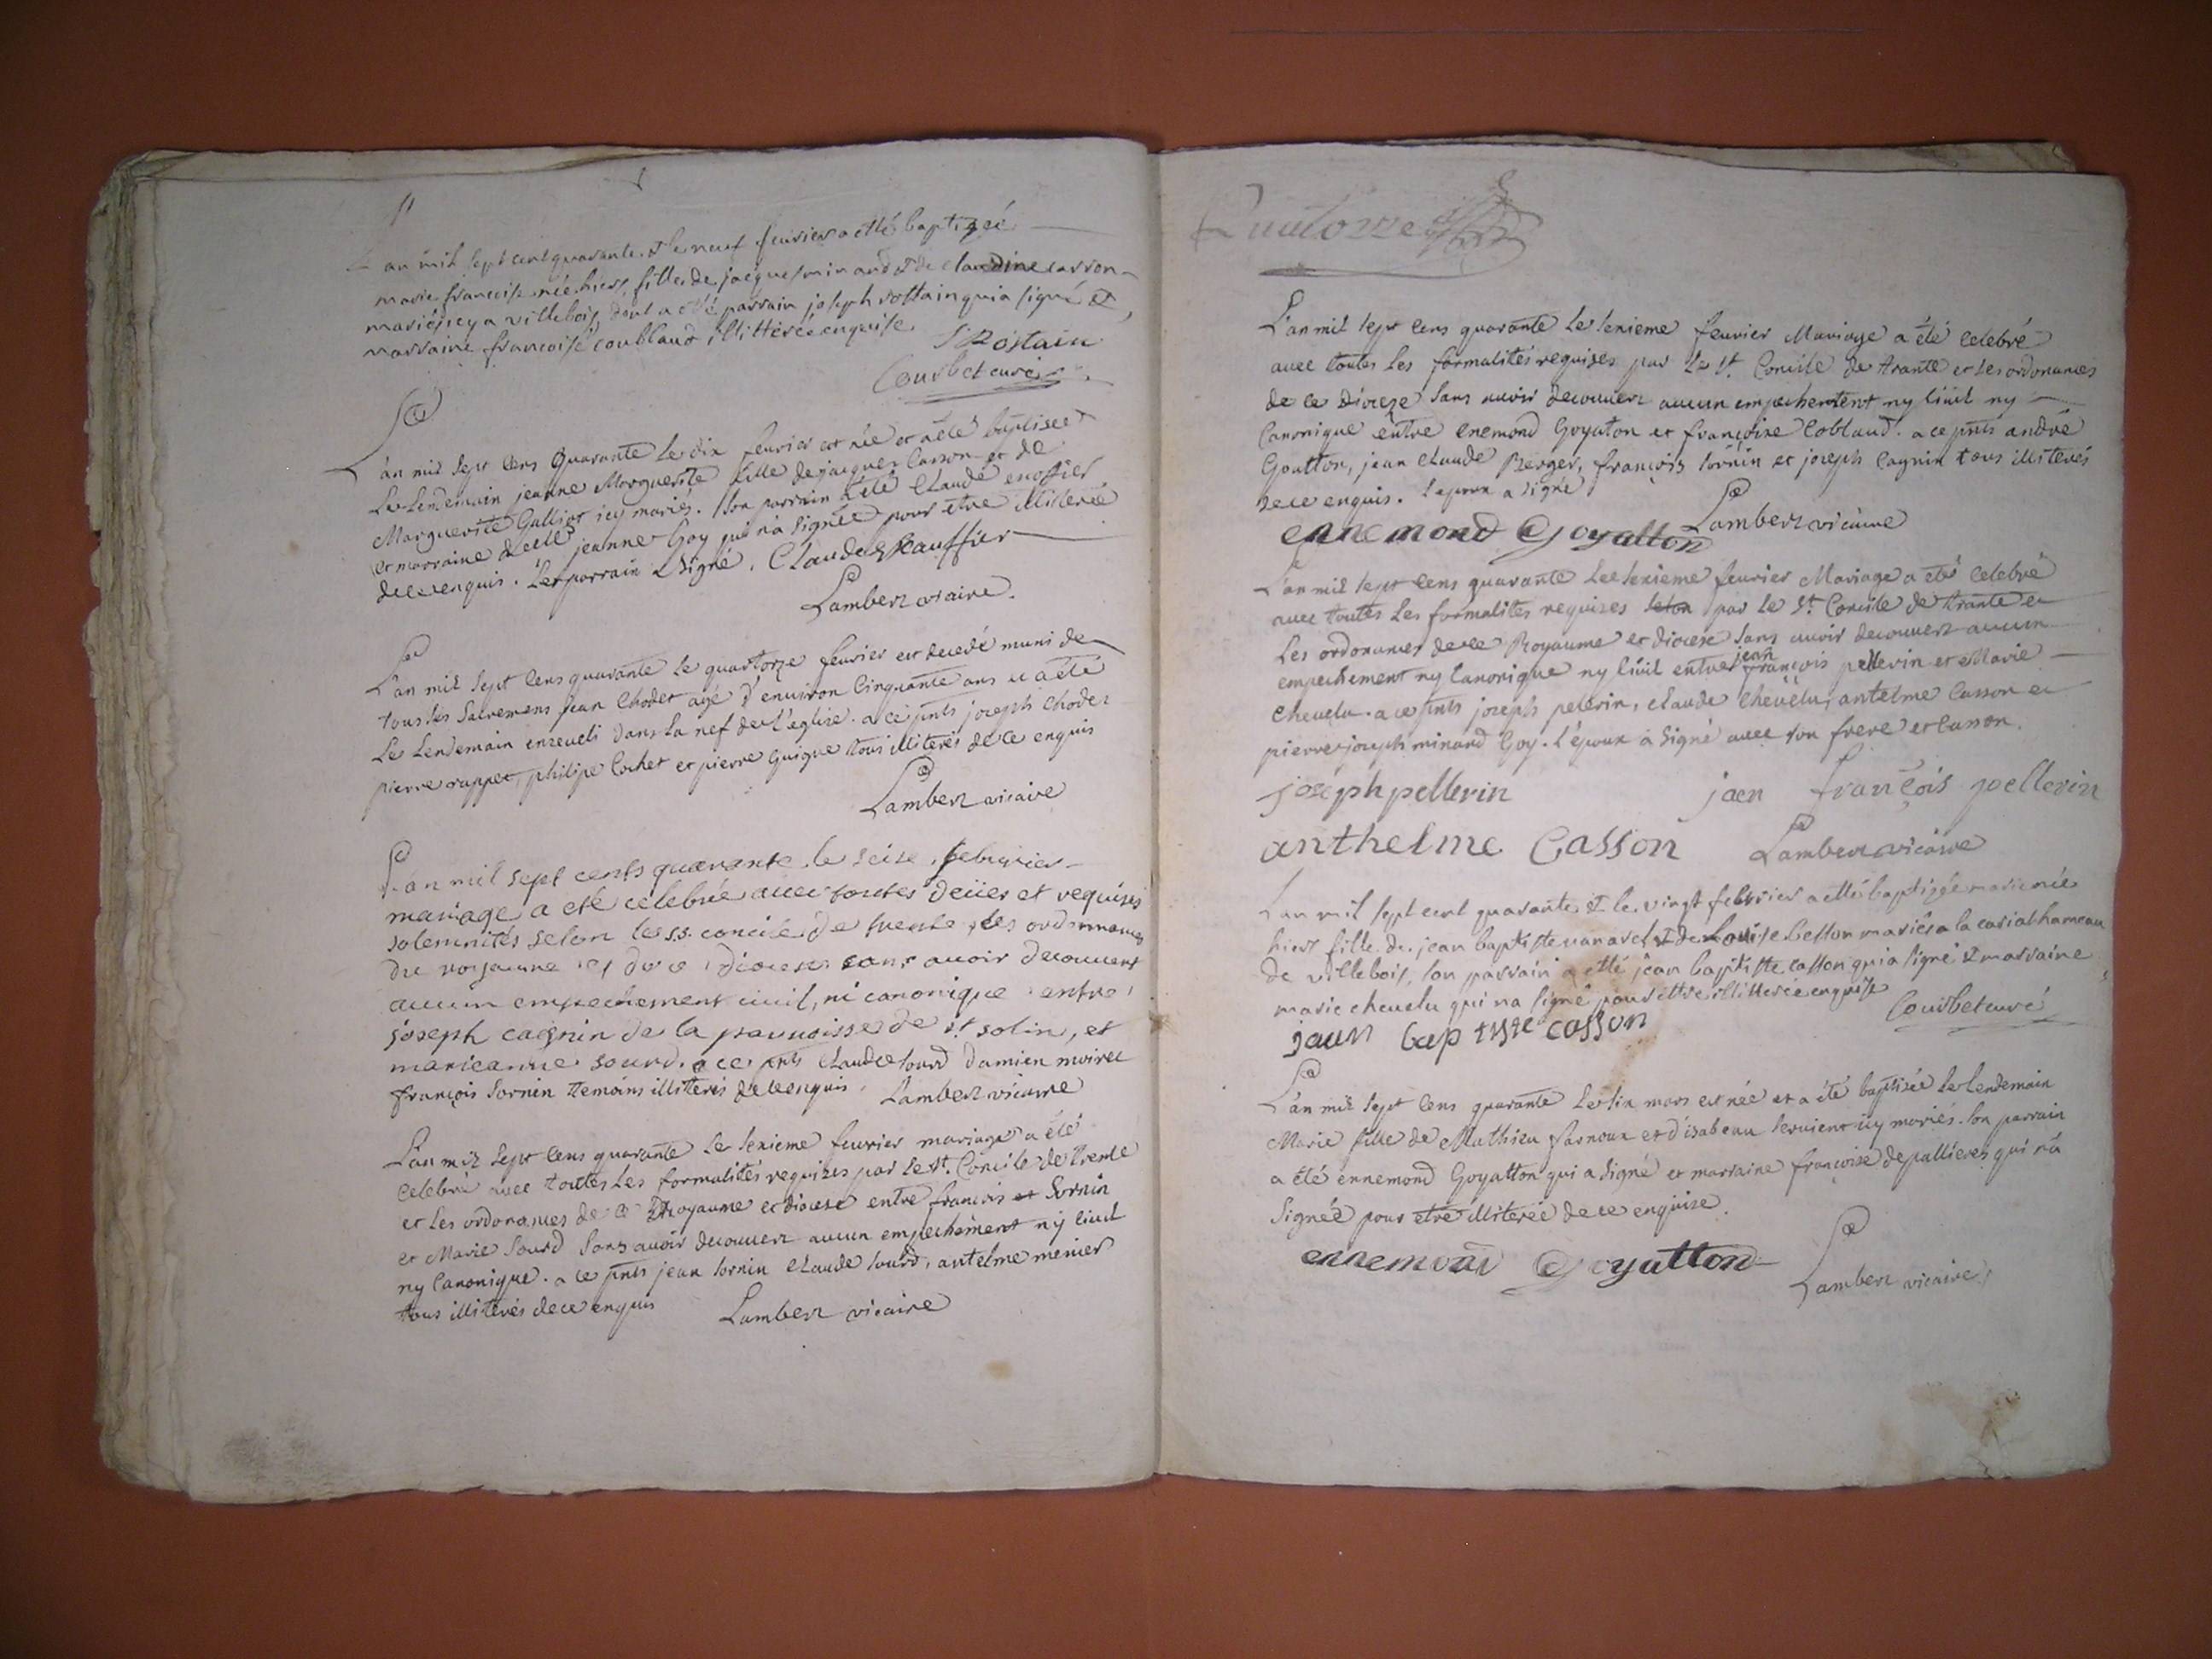 L'an mil sept cent quarante et le neuf fevrier a etté baptizeé
marie francoise née hiers fille de jacque minand et de claudine casson
mariés icy a villebois, dont a été parrain joseph rostain qui a signé et
marraine francoise coublaud illitterée enquise
J Rostain
Courbet curé
L'an mil sept cens quarante le dix feuvier est née et a été baptisée
le lendemain jeanne Marguerite fille de jacques Casson et de
Marguerite Galliot icy mariés. son parrain à été Claude escoffier
et marraine jeanne Goy qui n'a signée pour etre illiterée
de ce enquis. Le parrain a signé. Claude Skauffier
Lambert vicaire.
L'an mil sept cens quarante le quartorze feuvrier est decedé muni de
tous les Sacremens jean Chodet agé d'environ Cinquante ans et a été
le lendemain enseveli dans la nef de l'eglise. a ce pnts joseph chodet
pierre rappet, philipe Cochet et pierre guigue tous illiterés de ce enquis
Lambert vicaire
L'an mil sept cents quarante le seise febuvier
mariage a eté célébrée avec toutes deües et requises
solemnités selon le s.s. concile de trente, les ordonnances
du royaume et de ce diocese sans avoir decouvert
aucun empechement civil, ni canonique entre
joseph cagnin de la parroisse de st solin, et
marieanne sourd. a ce pnts claude sourd damien moiret
françois Sornin temoins illiterés de ce enquis. Lambert vicaire
L'an mil sept cens quarante le sexieme feuvrier mariage a été
celebré avec toutes les formalités requises par le st. Concile de Trente
et les ordonances de ce Royaume et diocese entre francois et Sornin
et Marie Sourd sans avoir decouvert aucun empechement ny civil
ny Canonique. a ce pnts jean sornin claude sourd, antelme menier
tous illiterés de ce enquis Lambert vicaire
Quatorze
L'an mil sept cens quarante le sexieme feuvrier Mariage a été celebré
avec toutes les formalités requises par le st. Concile de trante et les ordonances
de ce dioceze sans avoir decouvert aucun empechement ny civil ny
Canonique entre enemond Goyaton et françoise Coblaud. a ce pnts andré
Goutton, jean claude Berger, françois sornin et joseph Cagnin tous illiterés
de ce enquis. l'epoux a signé
ennemond Goyatton Lambert vicaire
L'an mil sept cens quarante le sexieme feuvrier Mariage a été celebré
avec toutes les formalités requises selon par le St. Concile de trante et
les ordonances de ce Royaume et diocese sans avoir decouvert aucun
empechement ny Canonique ny civil entre jean francois pellerin et Marie
Chevelu. a ce pnts joseph pelerin, claude Chevelu, antelme Casson et
pierre joseph minand Goy. l'époux à signé avec son frere et Casson.
joseph pellerin jaen françois pellerin
anthelme Casson Lambert vicaire
L'an mil sept cent quarante et le vingt febvrier a etté baptizée marie née
hiers fille de jean baptiste vanarel et de Louise besson mariés a la carial hameau
de villebois, son parrain a etté jean baptiste casson qui a signé et marraine
marie chevelu qui na signé pour ettre illitterée enquise
jaun baptiste casson Courbet curé
L'an mil sept cens quarante le six mars est née et a été baptisée le lendemain
Marie fille de Mathieu farnoux et d'isabeau Servient icy mariés. son parrain
a été ennemond Goyatton qui a signé et marraine françoise depallieres qui n'a
signée pour etre illiterée de ce enquise.
ennemond Goyatton
Lambert vicaire